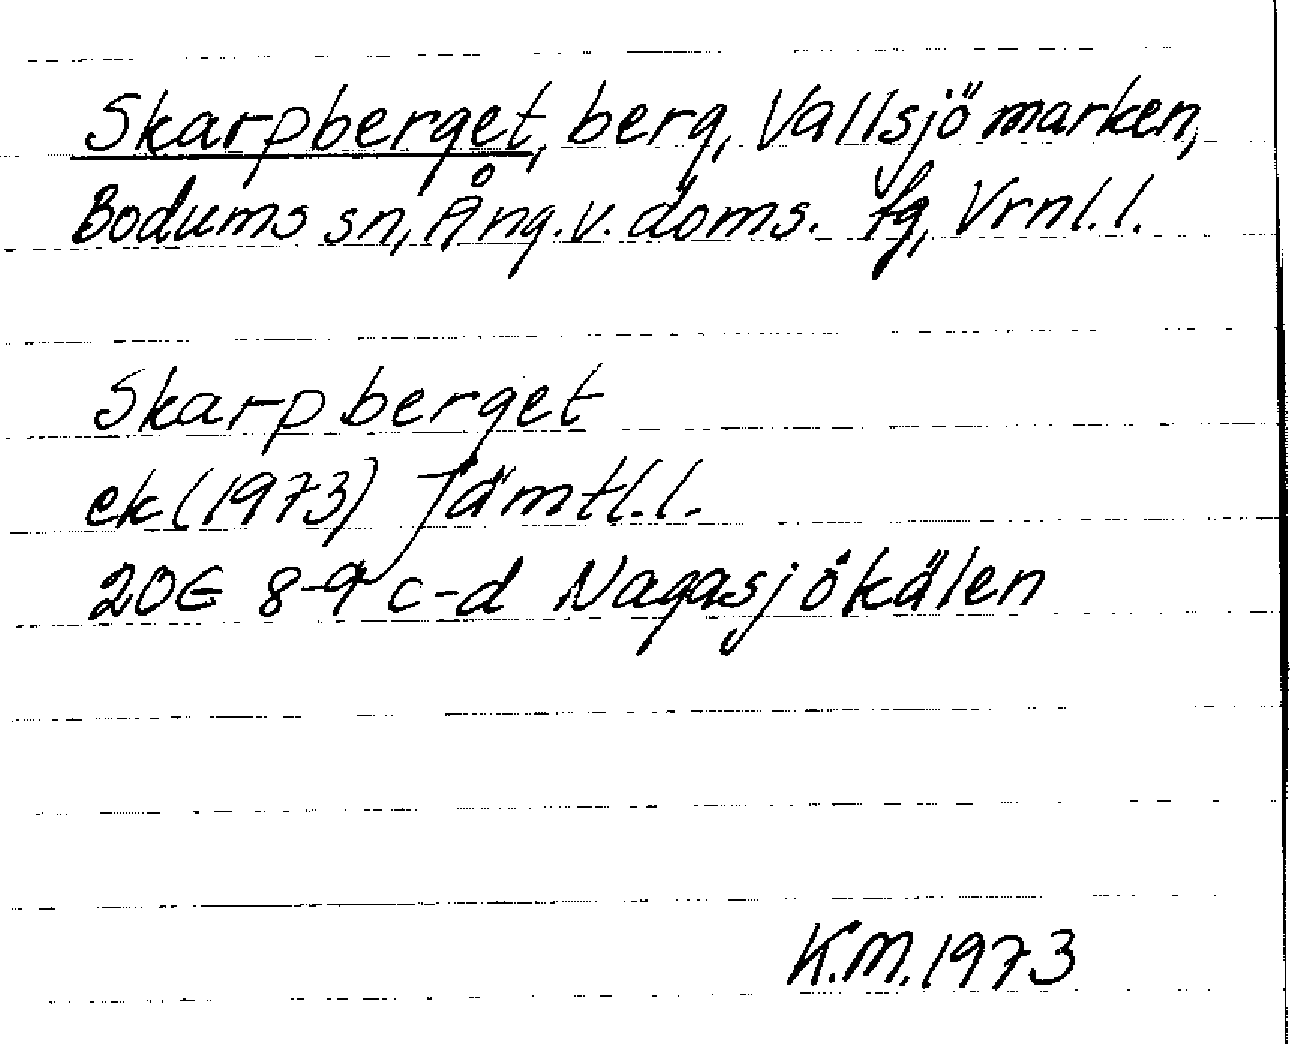 Skarpberget, berg, Vallsjömarken,
Bodums sn, Ång. v. doms. fg, Vrnl. l.
Skarpberget
ek (1973) Jämtl. l.
20E 8-9 c-d Nagasjökälen
K.M. 1973